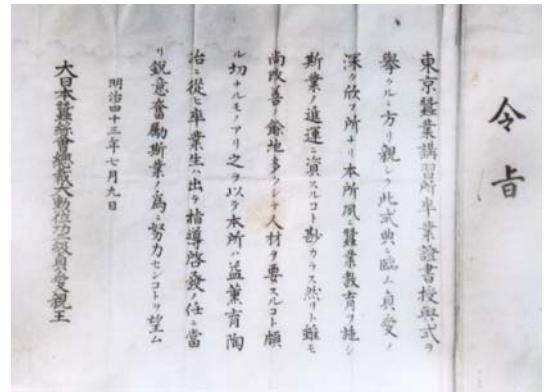 令旨
東京蠶業講習所卒業證書授與式ヲ
擧クルニ方リ親シク此式典ニ臨ムハ貞愛ノ
深ク欣フ所ナリ本所夙ニ蠶業敎育ヲ施シ
斯業ノ進運ニ資スルコト尠カラス然リト雖モ
尚改善ノ餘地多クシテ人材ヲ要スルコト頗
ル切ナルモノアリ之ヲ以テ本所ハ益薰育陶
冶ニ從ヒ卒業生ハ出テ指導啓發ノ任ニ當
リ鋭意奮勵斯業ノ爲ニ努力センコトヲ望ム
明治四十三年七月九日
大日本蠶絲會總裁大勳位功二級貞愛親王